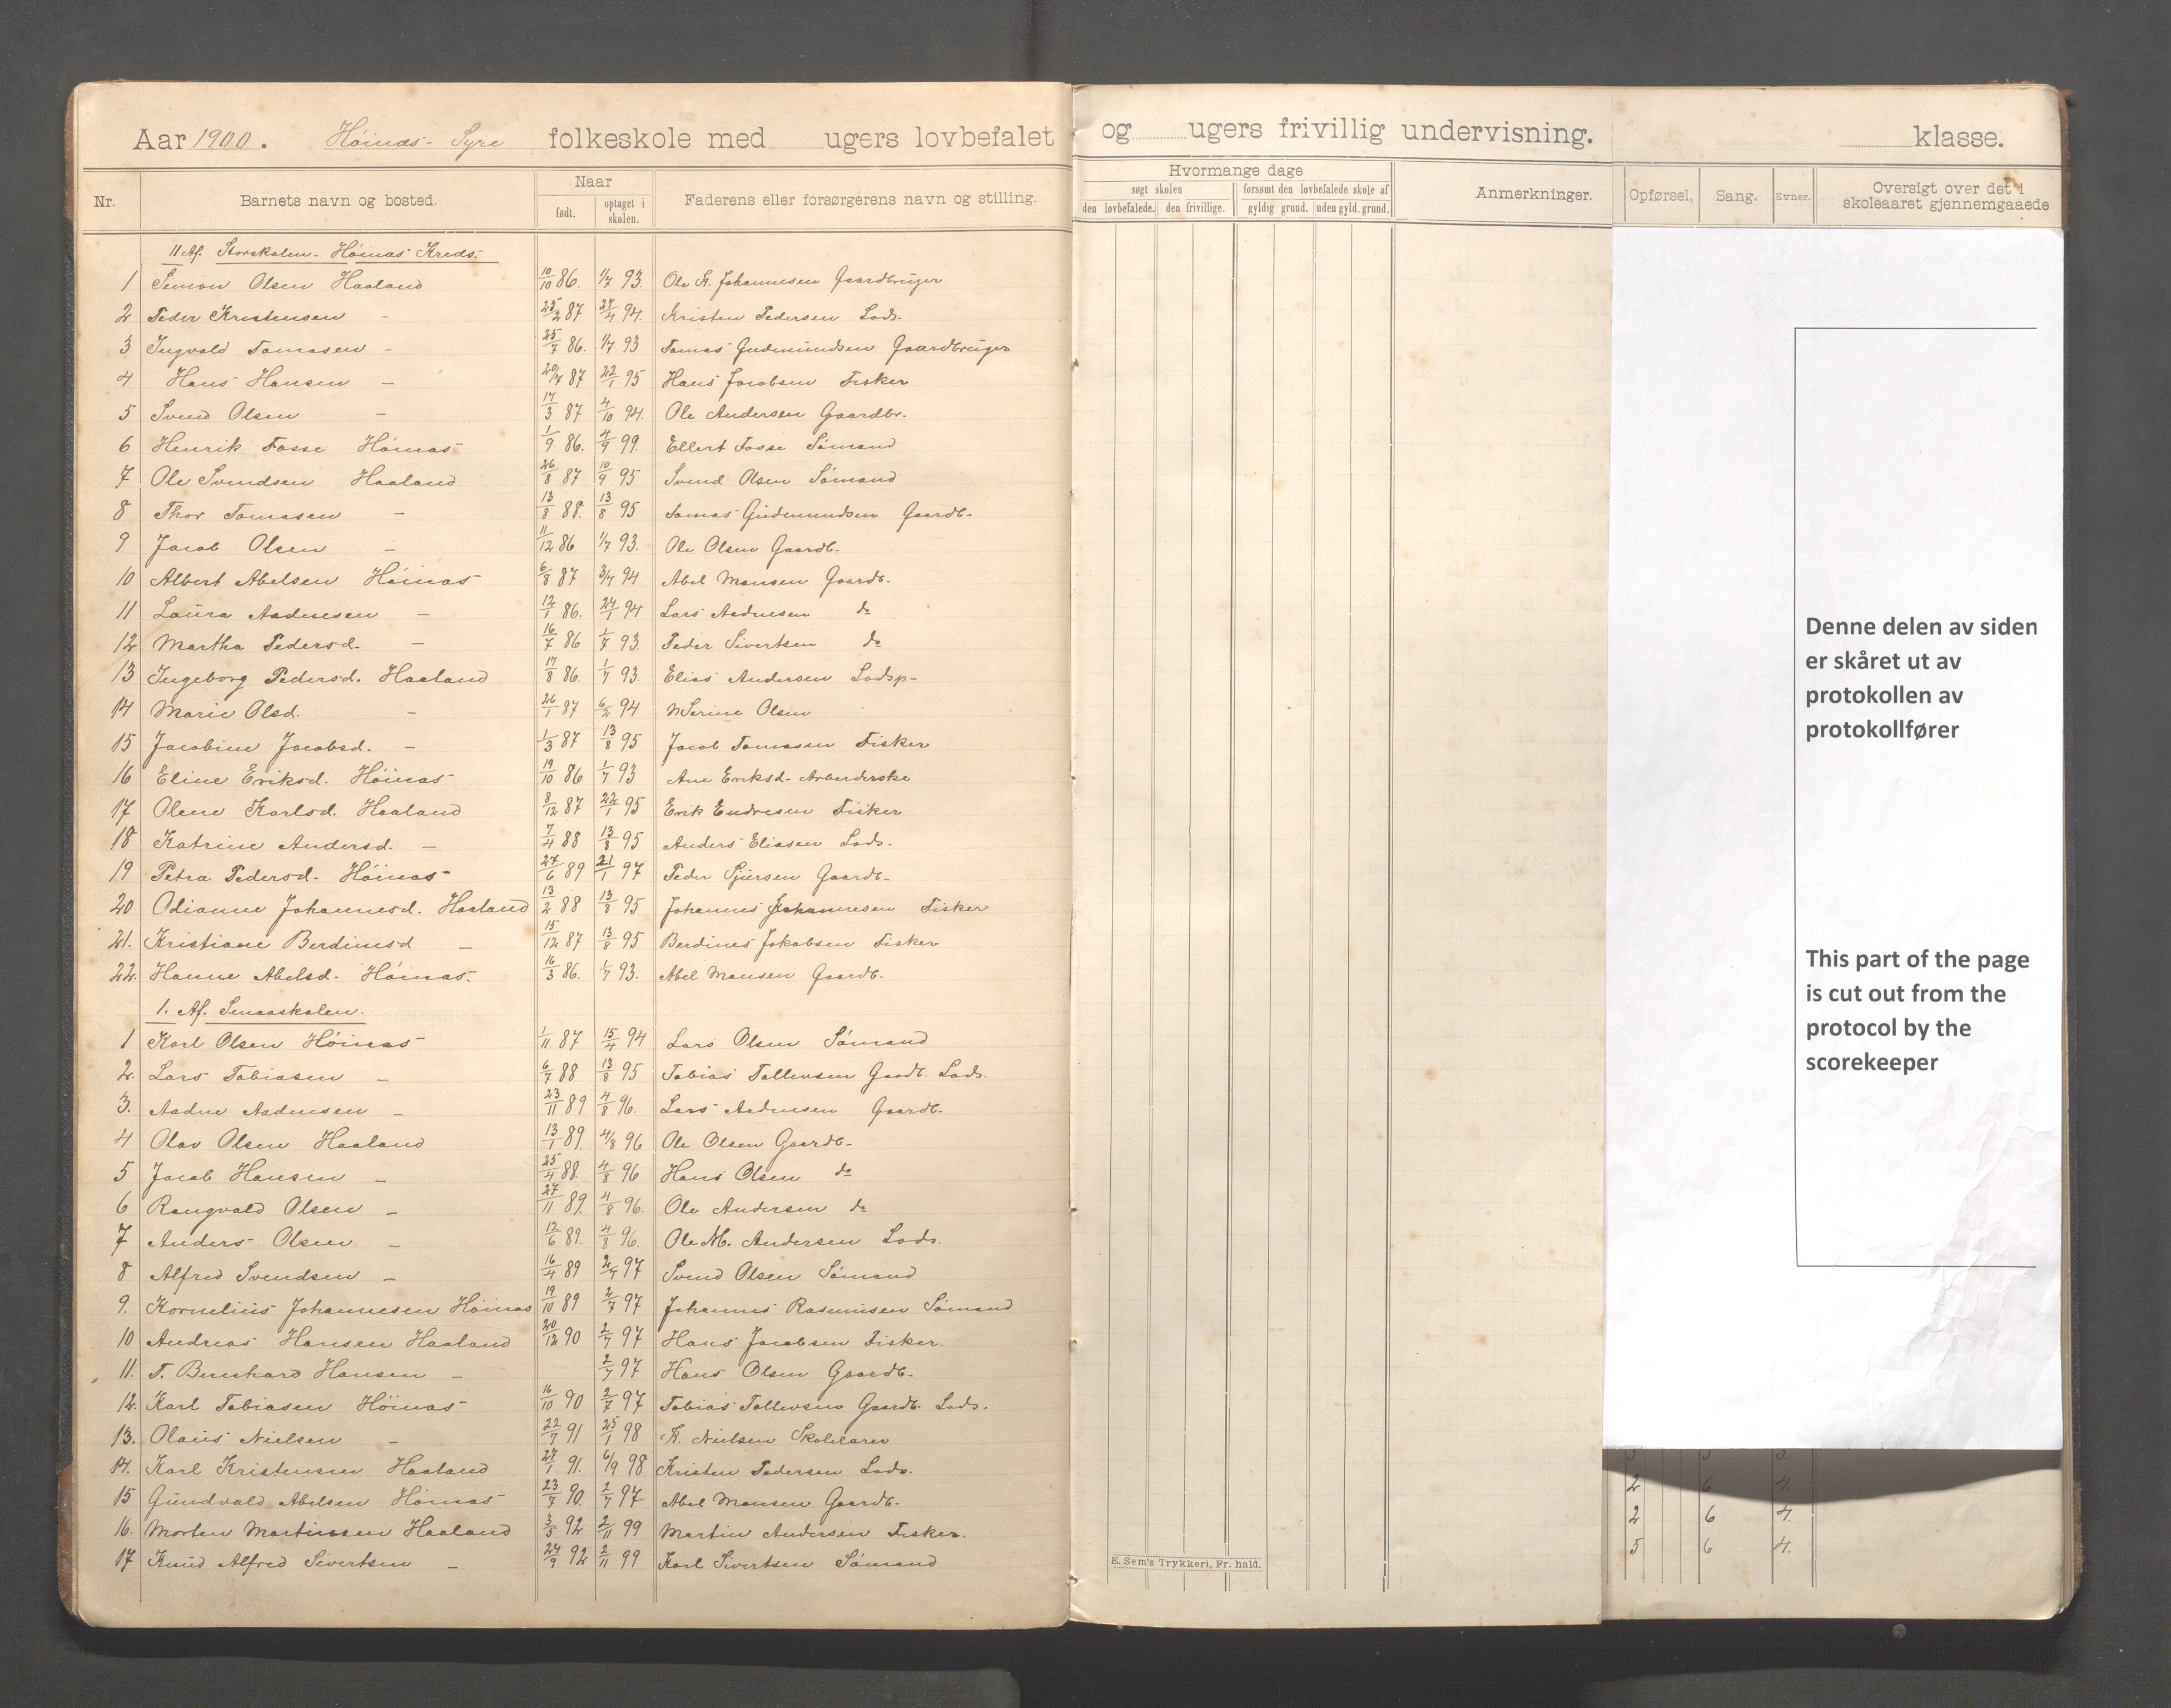 Aar 1900. Höinæs- Syre folkeskole med ugers lovbefalet og ugers frivillig undervisning. klasse.
Nr. Barnets navn og bosted. Naar født. optaget i skolen. Faderens eller forsørgerens navn og stilling.
Hvormange dage søgt skolen den lovbefalede. den frivillige. forsømt den lovbefalede skole af gyldig grund. uden gyld. grund. Anmerkninger. Opførsel, Sang. Evner. Oversigt over det i skoleaaret gjennemgaaede
II Af. Storskolen- Höinæs Kreds-
1 Simon Olsen Haaland 10/10 86. 1/7 93. Ole K. Johannesen Gaardbruger
2 Peder Kristensen - 25/2 87 27/4 94. Kristen Pedersen Lods.
3 Ingvald Tomasen - 25/7 86. 1/7 93 Tomas Gudmundsen Gaardbruger
4 Hans Hansen - 20/7 87 22/1 95 Hans Jacobsen Fisker
5 Svend Olsen - 17/3 87 4/10 94. Ole Andersen Gaardbr.
6 Henrik Fosse Höinæs 1/9 86. 4/9 99. Ellert Fosse Sömand
7 Ole Svendsen Haaland 26/8 87 10/9 95 Svend Olsen Sömand
8 Thor Tomasen - 13/8 88. 13/8 95 Tomas Gudmundsen Gaardb.
9 Jacob Olsen - 11/12 86 1/7 93. Ole Olsen Gaardb.
10 Albert Abelsen Höinæs 6/8 87 3/7 94 Abel Monsen Gaardb.
11 Laura Aadnesen - 12/1 86. 24/1 94 Lars Aadnesen do
12 Martha Pedersd. - 16/7 86 1/7 93. Peder Sivertsen do
13 Ingeborg Pedersd. Haaland 17/8 86. 1/7 93. Elias Andersen Lodsp-
14 Marie Olsd. - 26/1 87 6/2 94 Serine Olsen
15 Jacobine Jacobsd. - 1/3 87 13/8 95 Jacob Tomasen Fisker
16 Eline Eriksd. Höinæs 19/10 86 1/7 93 Ane Eriksd- Arbeiderske
17 Olene Karlsd. Haaland 8/12 87 22/1 95 Erik Endresen Fisker
18 Katrine Andersd. - 7/4 88 13/8 95 Anders Eliasen Lods.
19 Petra Pedersd- Höinæs 27/6 89 21/1 97 Peder Sjursen Gaardb.
20 Odianne Johannesd. Haaland 13/2 88 13/8 95 Johannes Johannesen Fisker
21. Kristiane Berdinesd - 15/12 87 13/8 95 Berdines Jakobsen Fisker
22. Hanne Abelsd- Höinæs. 16/3 86. 1/7 93. Abel Monsen Gaardb.
1. Af. Smaaskolen.
1 Karl Olsen Höinæs 1/11 87 15/4 94 Lars Olsen Sömand
2. Lars Tobiasen - 6/7 88 13/8 95 Tobias Tollevsen Gaardb. Lods.
3. Aadne Aadnesen - 23/11 89 4/8 96. Lars Aadnesen Gaardb.
4 Olav Olsen Haaland 13/1 89. 4/8 96 Ole Olsen Gaardb-
5 Jacob Hansen - 25/4 88. 4/8 96 Hans Olsen do
6 Rangvald Olsen - 27/11 89. 4/8 96. Ole Andersen do
7 Anders Olsen - 12/6 89. 4/8 96. Ole M. Andersen Lods.
8 Alfred Svendsen - 16/4 89 2/7 97 Svend Olsen Sömand
9. Kornelius Johannesen Höinæs 19/10 89 2/7 97 Johannes Rasmusen Sömand
10 Andreas Hansen Haaland 20/12 90 2/7 97 Hans Jacobsen Fisker.
11. T. Bernhard Hansen - 2/7 97 Hans Olsen Gaardb.
12. Karl Tobiasen Höinæs 16/10 90 2/7 97 Tobias Tollevsen Gaardb. Lods.
13. Olaus Nielsen - 22/7 91 25/1 98 K. Nielsen Skolelærer
14. Karl Kristensen Haaland 27/1 91. 6/9 98 Kristen Pedersen Lods.
15 Gundvald Abelsen Höinæs 23/7 90. 2/7 97 Abel Monsen Gaardb.
16. Morten Martinsen Haaland 3/5 92 2/11 99 Martin Andersen Fisker.
17 Knud Alfred Sivertsen - 24/9 92 2/11 99 Karl Sivertsen Sömand
E. Sem's Trykkeri, Fr. hald.
Denne delen av siden
er skåret ut av
protokollen av
protokollfører
This part of the page
is cut out from the
protocol by the
scorekeeper
2 6 4.
2 6 4.
5 6 4.